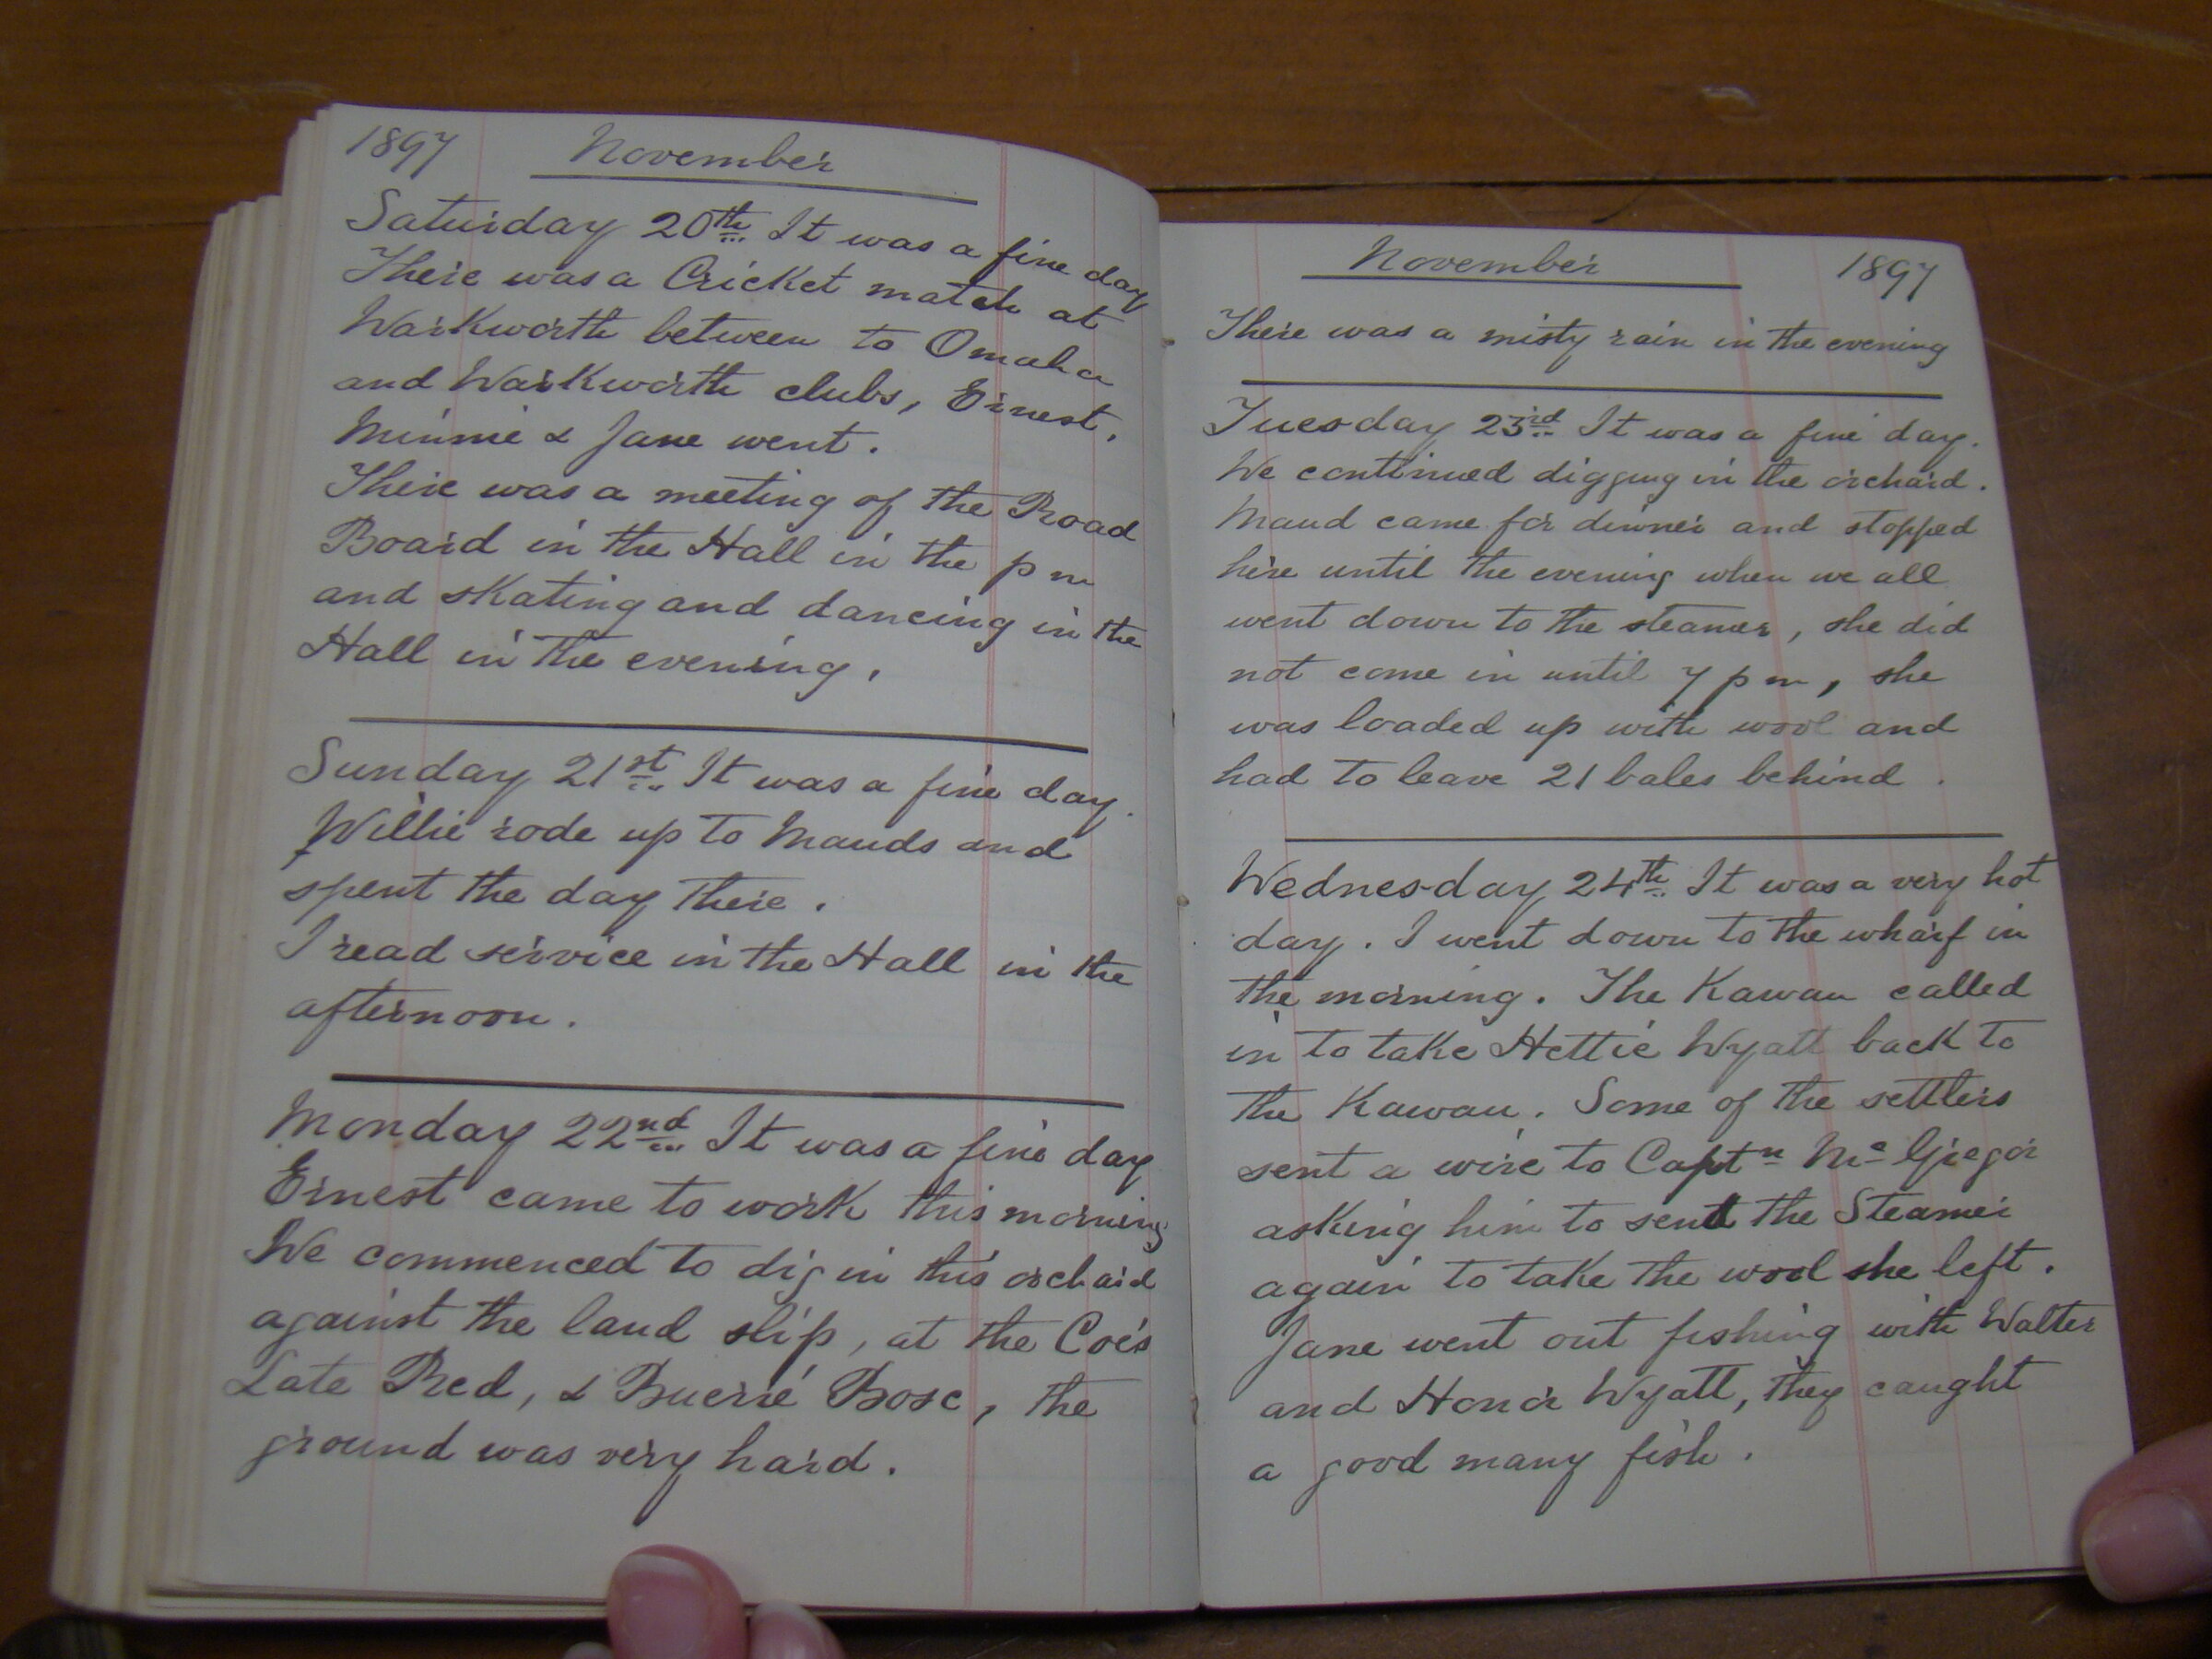 1897 November
Saturday 20th It was a fine day
There was a Cricket match at
Warkworth between to Omaha
and Warkworth clubs, Ernest,
Minnie & Jane went.
There was a meeting of the Road
Board in the Hall in the p m
and skating and dancing in the
Hall in the evening.
Sunday 21st It was a fine day.
Willie rode up to Mauds and
spent the day there.
I read service in the Hall in the
afternoon.
Monday 22nd It was a fine day
Ernest came to work this morning
We commenced to dig in this orchard
against the land slip, at the Coe's
Late Red, & Buerré Bosc, the
ground was very hard.
November 1897
There was a misty rain in the evening
Tuesday 23rd It was a fine day.
We continued digging in the orchard.
Maud came for dinner and stopped
here until the evening when we all
went down to the steamer, she did
not come in until 7 p m, she
was loaded up with wool and
had to leave 21 bales behind.
Wednesday 24th It was a very hot
day. I went down to the wharf in
the morning. The Kawau called
in to take Hettie Wyatt back to
the Kawau. Some of the settlers
sent a wire to Captn Mc Gregor
asking him to send the Steamer
again to take the wool she left.
Jane went out fishing with Walter
and Honor Wyatt, they caught
a good many fish.